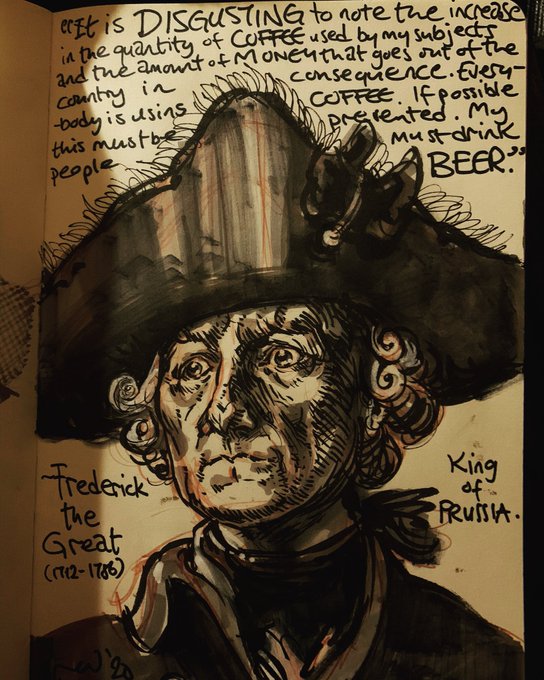 "It is DISGUSTING to note the increase
in the quantity of COFFEE used by my subjects
and the amount of MONEY that goes out of the
country in consequence. Every-
body is using COFFEE. If possible
this must be prevented. My
people must drink
BEER."
Frederick
the
Great
(1712-1786)
King
of
PRUSSIA.
'20